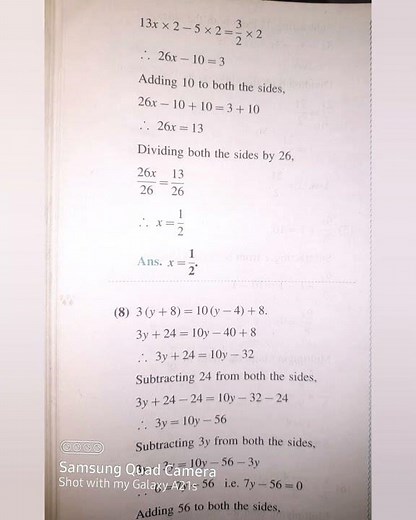 13x × 2 − 5 × 2 = 3/2 × 2
∴ 26x − 10 = 3
Adding 10 to both the sides,
26x − 10 + 10 = 3 + 10
∴ 26x = 13
Dividing both the sides by 26,
26x/26 = 13/26
∴ x = 1/2
Ans. x = 1/2.
(8) 3 (y + 8) = 10 (y − 4) + 8.
3y + 24 = 10y − 40 + 8
∴ 3y + 24 = 10y − 32
Subtracting 24 from both the sides,
3y + 24 − 24 = 10y − 32 − 24
∴ 3y = 10y − 56
Subtracting 3y from both the sides,
= 10y − 56 − 3y
− 56 i.e. 7y − 56 = 0
Adding 56 to both the sides,
Samsung Quad Camera
Shot with my Galaxy A21s